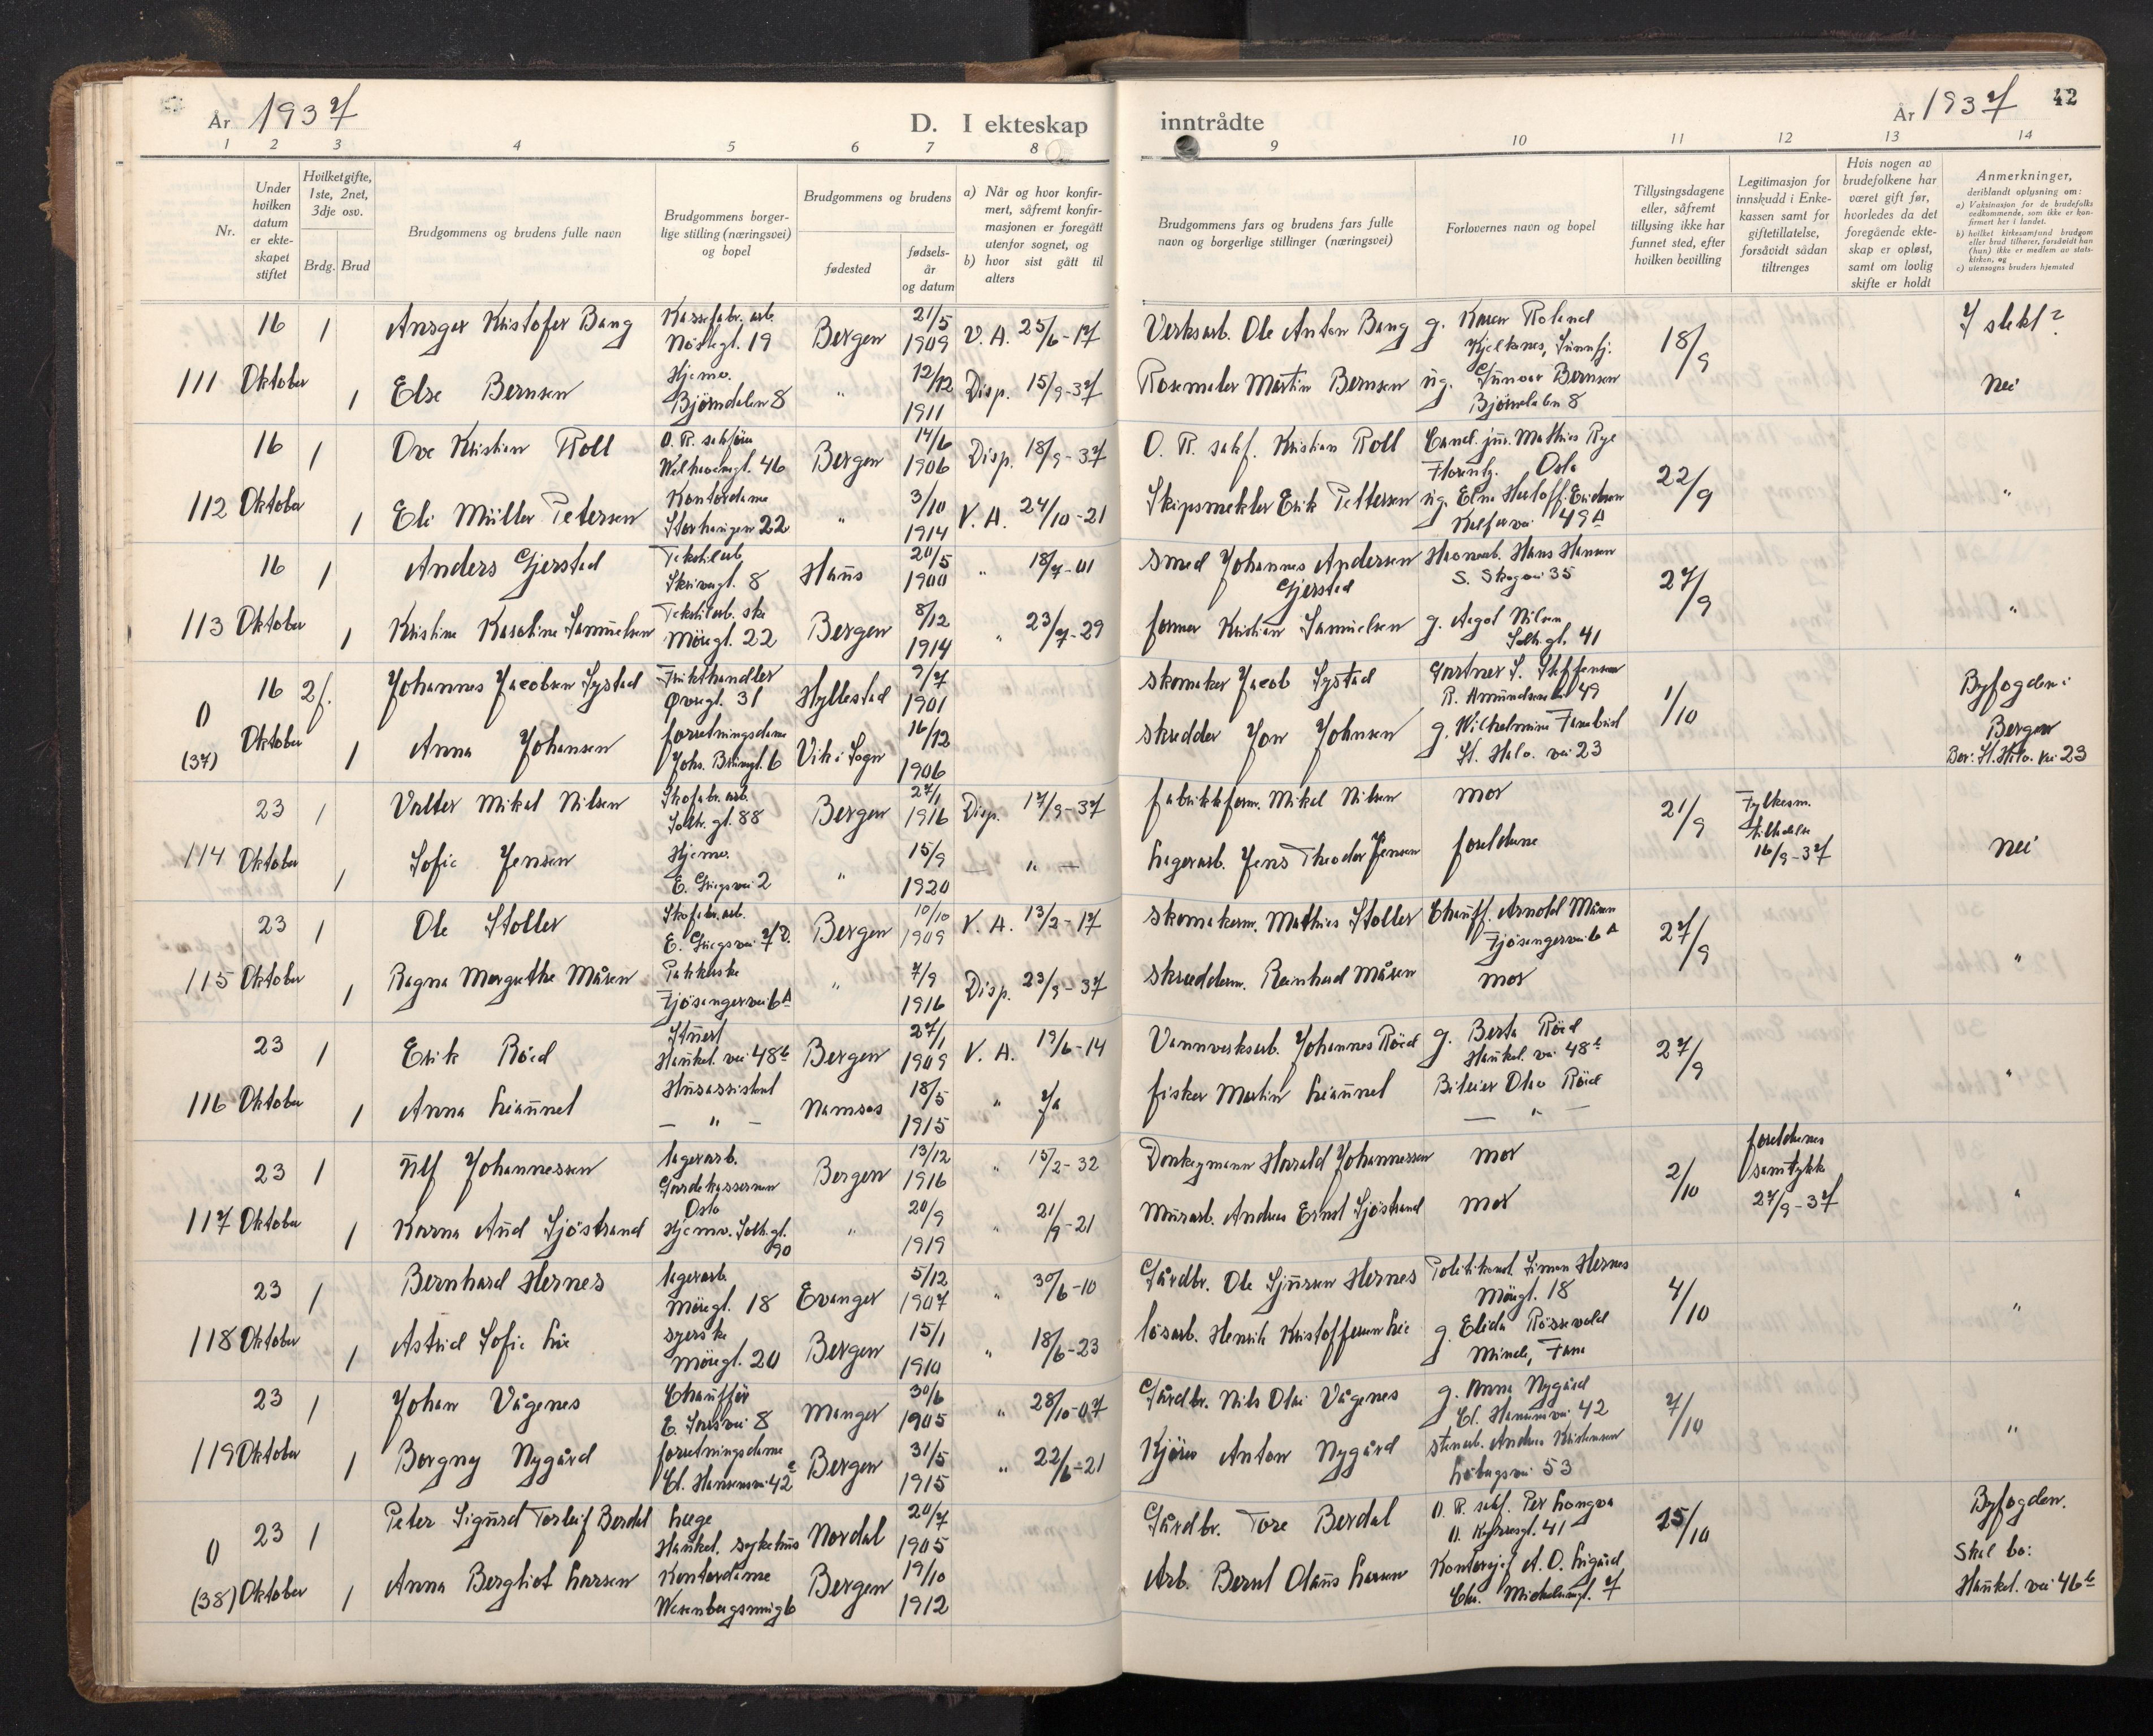 År 1937
D. I ekteskap
inntrådte
År 1937
42
1 2 3 4 5 6 7 8
9 10 11 12 13 14
Nr.
Under
hvilken
datum
er ekte-
skapet
stiftet
Hvilket gifte,
1ste, 2net,
3dje osv.
Brdg. Brud
Brudgommens og brudens fulle navn
Brudgommens borger-
lige stilling (næringsvei)
og bopel
Brudgommens og brudens
fødested
fødsels-
år
og datum
a) Når og hvor konfir-
mert, såfremt konfir-
masjonen er foregått
utenfor sognet, og
b) hvor sist gått til
alters
Brudgommens fars og brudens fars fulle
navn og borgerlige stillinger (næringsvei)
Forlovernes navn og bopel
Tillysingsdagene
eller, såfremt
tillysing ikke har
funnet sted, efter
hvilken bevilling
Legitimasjon for
innskudd i Enke-
kassen samt for
giftetillatelse,
forsåvidt sådan
tiltrenges
Hvis nogen av
brudefolkene har
været gift før,
hvorledes da det
foregående ekte-
skap er opløst,
samt om lovlig
skifte er holdt
Anmerkninger,
deriblandt oplysning om:
a) Vaksinasjon for de brudefolks
vedkommende, som ikke er kon-
firmert her i landet.
b) hvilket kirkesamfund brudgom
eller brud tilhører, forsåvidt han
(hun) ikke er medlem av stats-
kirken, og
c) utensogns bruders hjemsted
111
16 Oktober
1
Ansger Kristofer Bang
Nöstegt. 19
Bergen
21/5 1909
V. A. 25/6-17
Verksarb. Ole Anton Bang
g. Karen Roland
18/9
I slekt?
1
Else Bernsen
Hjemv.
Björndalen 8
"
12/12 1911
Disp. 15/9-37
Rosemaler Martin Bernsen
ug. Gunvor Bernsen
Björndalen 8
nei
112
16 Oktober
1
Ove Kristian Roll
O. R. sakförer
Welhavensgt. 46
Bergen
14/6 1906
Disp. 18/9-37
O. R. sakf. Kristian Roll
Cand. jur. Mathias Rye
Oslo
22/9
"
1
Eli Müller Petersen
Kontordame
Storhaugen 22
"
3/10 1914
V. A. 24/10-21
Skipsmekler Erik Pettersen
Kalfarvei 49 A
113
16 Oktober
1
Anders Gjerstad
Tekstilarb.
Skrivergt. 8
Haus
20/5 1900
" 18/7-01
smed Johannes Andersen
Gjerstad
Havnearb. Hans Hansen
S. Skogvei 35
27/9
"
1
Kristine Karoline Samuelsen
Tekstilarb. ske
Möregt. 22
Bergen
8/12 1914
" 23/7-29
former Kristian Samuelsen
g. Aagot Nilsen
Solh. gt. 41
0
(37)
16 Oktober
2 f.
Johannes Jacobsen Systad
Frukthandler
Øvregt. 31
Hyllestad
9/7 1901
skomaker Jacob Systad
Gartner S. Steffensen
R. Amundsens vei 49
1/10
Byfogden i
Bergen
1
Anna Johansen
forretningsdame
Johs. Brunsgt. 6
Vik i Sogn
16/12 1906
skredder Jon Johnsen
g. Wilhelmine
St. Halv. vei 23
Bor: St. Halv. vei 23
114
23 Oktober
1
Valter Mikal Nilsen
Skofabr. arb.
Solh. gt. 88
Bergen
27/1 1916
Disp. 17/9-37
fabrikkform. Mikal Nilsen
mor
21/9
Fylkesm.
tillatelse
16/9-37
nei
1
Sofie Jensen
Hjemv.
E. Griegs vei 2
"
15/9 1920
— " —
Lagerarb. Jens Theodor Jensen
foreldrene
115
23 Oktober
1
Ole Stoller
Skofabr. arb.
E. Griegs vei 7 D.
Bergen
10/10 1909
V. A. 13/2-17
skomakerm. Mathias Stoller
Chauff. Arnold Måren
Fjösangervei 6 A
27/9
"
1
Ragna Margrethe Måren
Pakkerske
Fjösangervei 6 A
"
7/9 1916
Disp. 23/9-37
skredderm. Reinhard Måren
mor
116
23 Oktober
1
Erik Röed
Stuert
Haukel. vei 48 b
Bergen
27/1 1909
V. A. 19/6-14
Vannverksarb. Johannes Röed
g. Berta Röed
Haukel. vei 48 b
27/9
"
1
Anna Liaunet
Husassistent
— " —
Namsos
18/5 1915
" Ja
fisker Martin Liaunet
Bileier Olav Röed
— " —
117
23 Oktober
1
Ulf Johannessen
lagerarb.
Gardekasernen
Oslo
Bergen
13/12 1916
" 15/2-32
Donkeymann Harald Johannessen
mor
2/10
foreldrenes
samtykk
27/9-37
"
1
Karna Aud Sjöstrand
Hjemv. Solh. gt.
90
"
20/9 1919
" 21/9-21
Murarb. Andreas Ernst Sjöstrand
mor
118
23 Oktober
1
Bernhard Hernes
lagerarb.
Möregt. 18
Evanger
5/12 1907
" 30/6-10
Gårdbr. Ole Sjursen Hernes
Politikonst. Simon Hernes
Möregt. 18
4/10
"
1
Astrid Sofie Lie
syerske
Möregt. 20
Bergen
15/1 1910
" 18/6-23
lösarb. Henrik Kristoffersen Lie
g. Elida Rössevold
Minde, Fana
119
23 Oktober
1
Johan Vågenes
Chauffør
Manger
30/6 1905
" 28/10-07
Gårdbr. Nils Olai Vågenes
g. Anna Nygård
Cl. Hansens vei 42
7/10
"
1
Borgny Nygård
forretningsdame
Cl. Hansens vei 42 c
Bergen
31/5 1915
" 22/6-21
Kjörer Anton Nygård
stenarb. Andreas Kristensen
53
0
(38)
23 Oktober
1
Peter Sigurd Torleif Berdal
Læge
Haukel. sykehus
Nordal
20/7 1905
Gårdbr. Tore Berdal
O. R. sakf. Per Longva
41
15/10
Byfogden.
1
Anna Bergliot Larsen
Kontordame
Wesenbergsmug 6
Bergen
19/10 1912
Arb. Bernt Olaus Larsen
Kontorsjef A. O. Ligård
Chr. Michelsensgt. 7
Skal bo:
Haukel. vei 46 b